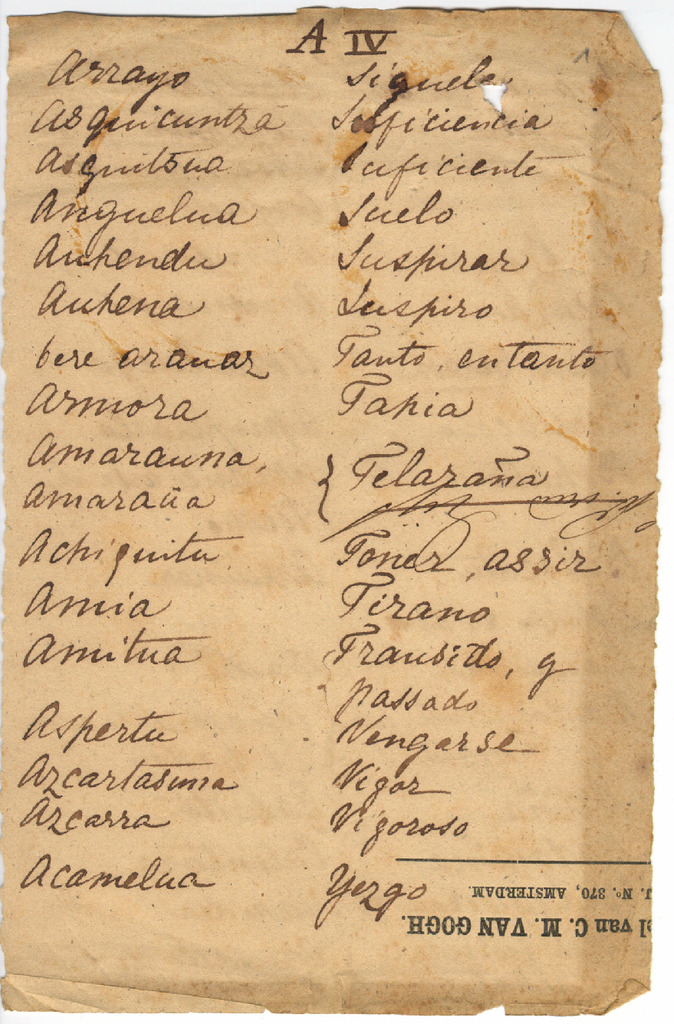 A IV
Arrayo Siguele
Asquicuntza Suficiencia
Asquitöua Suficiente
Anguelua Suelo
Auhendu Suspirar
Auhena Suspiro
bere arauaz Tanto, entanto
Armora Tapia
Amarauna,
Telaraña
Amaraüa
Achiquitu Toner, assir
Amia Tirano
Amitua Transido, y
passado
Aspertu Vengarse
Azcartasuna Vigor
Azcarra Vigoroso
Acamelua Yezgo
J. Nº. 370, AMSTERDAM.
el van C. M. VAN GOGH.